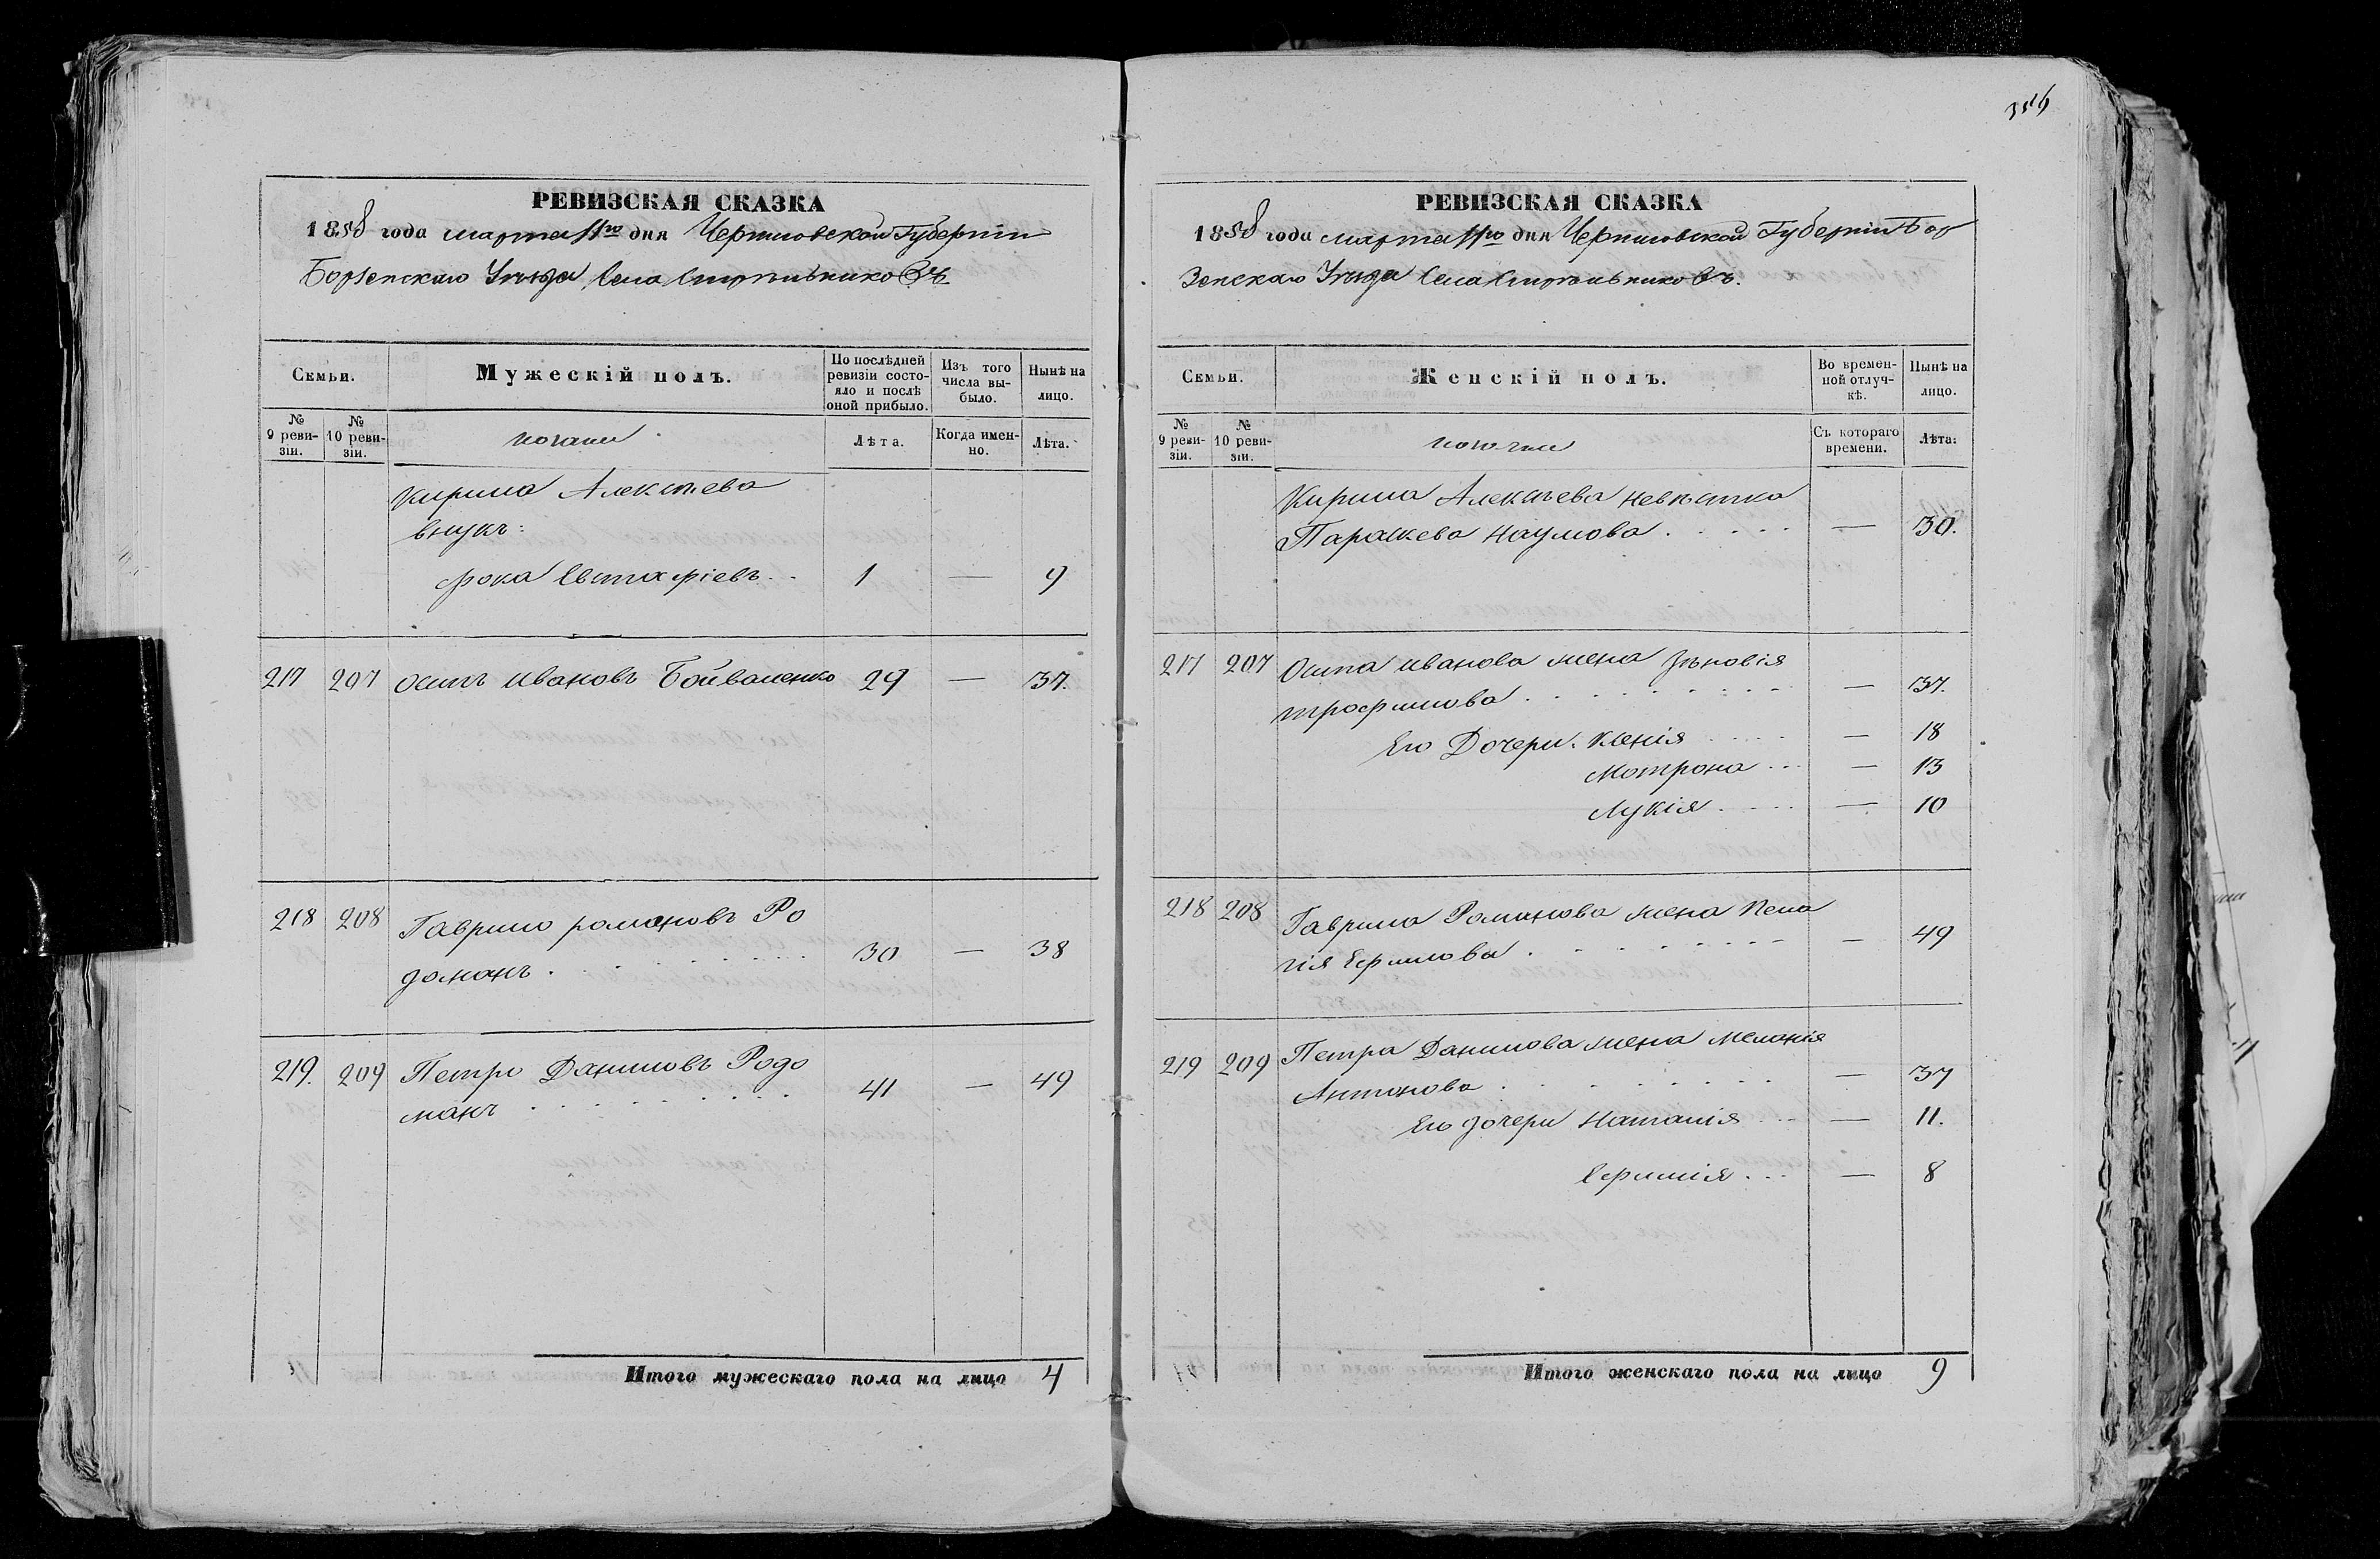 РЕВИЗСКАЯ СКАЗКА
1858 года марта 11го дня Черниговской Губерніи
Борзенскаго Уѣзда Села Стрѣльниковъ
Семьи.
Мужескій полъ.
По послѣдней ревизіи состояло и послѣ оной прибыло.
Изъ того числа выбыло.
Нынѣ на лицо.
№ 9 ревизіи.
№ 10 ревизіи.
Лѣта.
Когда именно.
Лѣта.
Кирила Алексѣева
внукъ:
Фока Евстафіевъ . . 1 — 9
217 207 Осипъ Ивановъ Бойваленко 29 — 37.
218 208 Гаврило романовъ Ро
доманъ . . . . . . . . 30 — 38
219. 209 Петро Даниловъ Родо
манъ . . . . . . . . 41 — 49
Итого мужескаго пола на лицо 4
РЕВИЗСКАЯ СКАЗКА
1858 года марта 11го дня Черниговской Губерніи Бор
зенскаго Уѣзда Села Стрѣльниковъ.
Семьи.
Женскій полъ.
Во временной отлучкѣ.
Нынѣ на лицо.
№ 9 ревизіи.
№ 10 ревизіи.
Съ котораго времени.
Лѣта:
Кирила Алексѣева невѣстка
Параскева Наумова . . . . . — 30.
217 207 Осипа иванова жена Зѣновія
трофимова . . . . . . . . — 37.
Его Дочери. Ксенія . . . . — 18
Мотрона . . . — 13
Лукія . . . . — 10
218 208 Гаврила Романова жена Пела
гія Ефимова . . . . . . . . — 49
219 209 Петра Данилова жена Меланія
Антонова . . . . . . . . — 37
Его дочери Наталія . . . — 11.
Ефимія . . . — 8
Итого женскаго пола на лицо 9